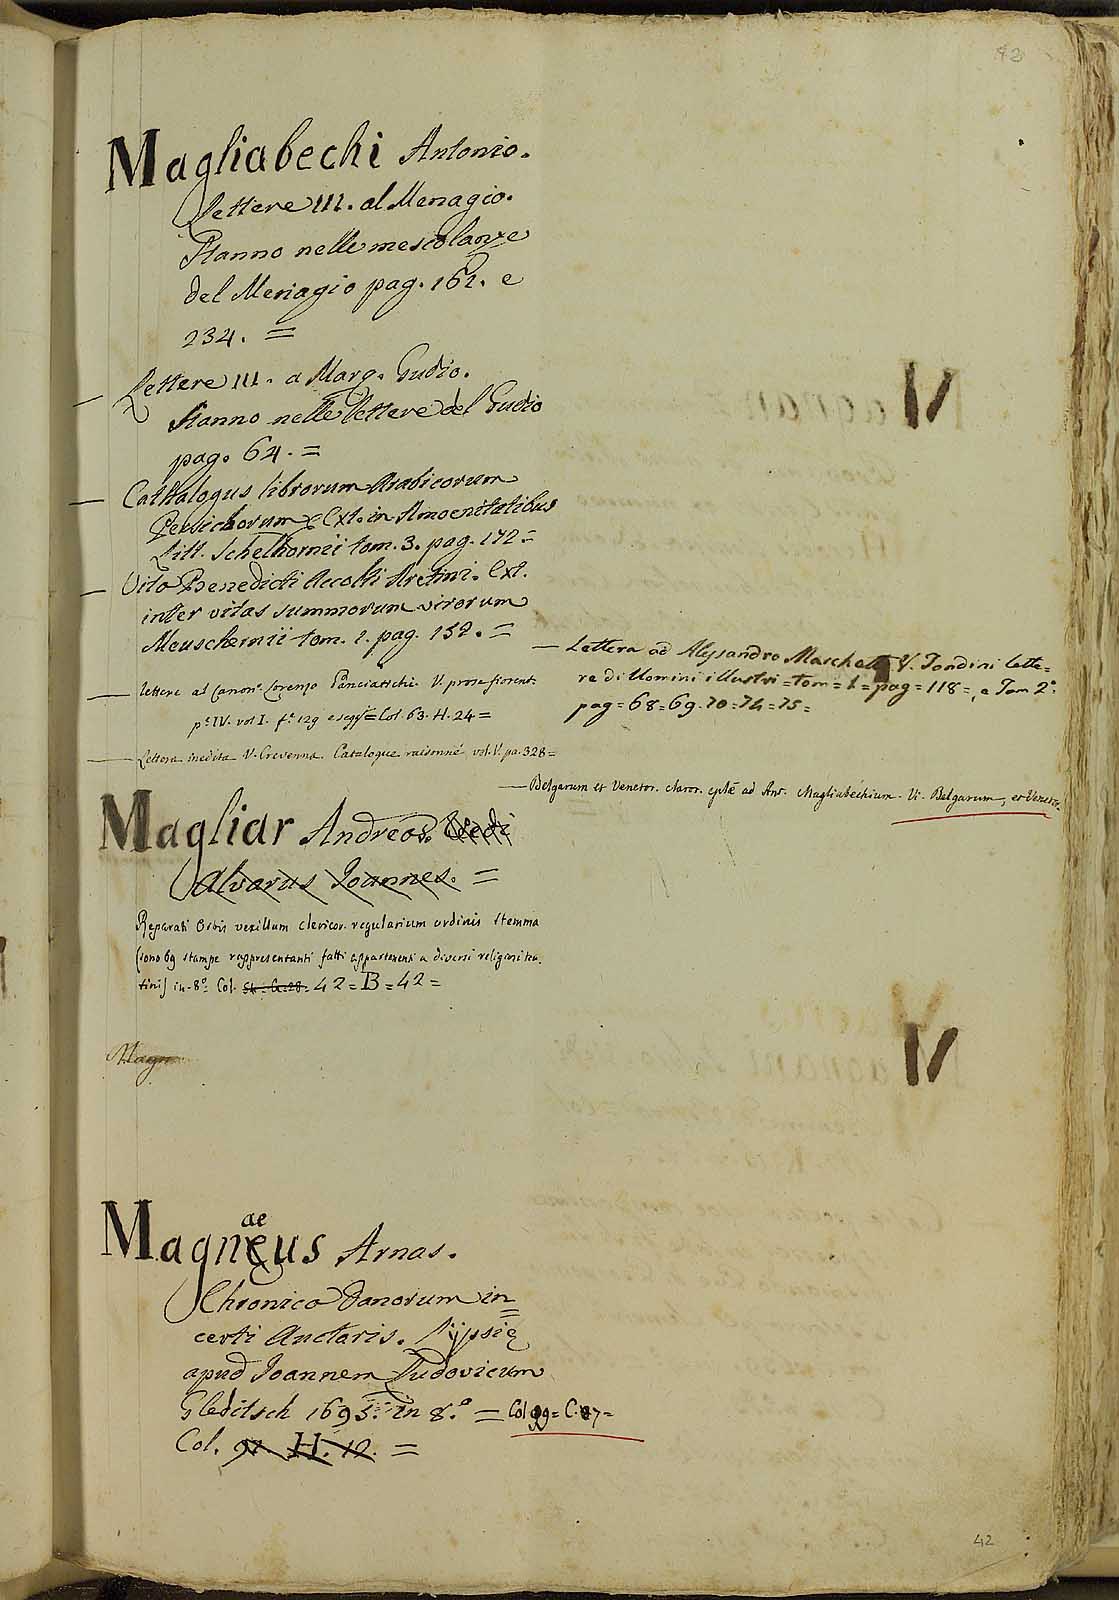 42
Magliabechi Antonio.
Lettere III. al Menagio.
Stanno nelle mescolanze
del Menagio pag. 161. e
234. =
— Lettere III. a Marq. Gudio.
Stanno nelle lettere del Gudio
pag. 64. =
— Cathalogus librorum Arabicorum
Persichorum &. Ext. in Amoenitatibus
Litt. Schelhornii tom. 3. pag. 172 =
— Vita Benedicti Accolti Aretini. Ext.
inter vitas summorum virorum
Meuschernii tom. 1. pag. 132. =
— Lettera ad Alessandro Marchetti V. Fondini lette=
re di Uomini illustri = tom = 1 = pag = 118 =, e Tom 2°.
pag = 68 = 69. 70 = 74 = 75 =
— Lettere al Canon.° Lorenzo Panciatichi. V. prose fiorent.
p.e IV. vol I. f.° 129 e segg = Col. 63. H. 24 =
— Lettera inedita V. Crevenna. Catalogue raisonné vol. V. pa. 328 =
— Belgarum et Venetor. claror. eplæ ad Ant. Magliabechium. V. Belgarum, et Venetor.
Magliar Andreas.
Alvarus Joannes. =
Reparati Orbis vexillum clericor. regularium ordinis stemma
(sono 69 stampe rappresentanti fatti appartenenti a diversi religiosi tea=
tini) in-8° Col. 42 = B = 42 =
Magn
Magnaeus Arnas.
Chronica Danorum in=
certi Auctoris. Lypsię
apud Joannem Ludovicum
Gleditsch 1695. in 8.° = Col 99 = C. 27 =
Col. 91. H. 12. =
42